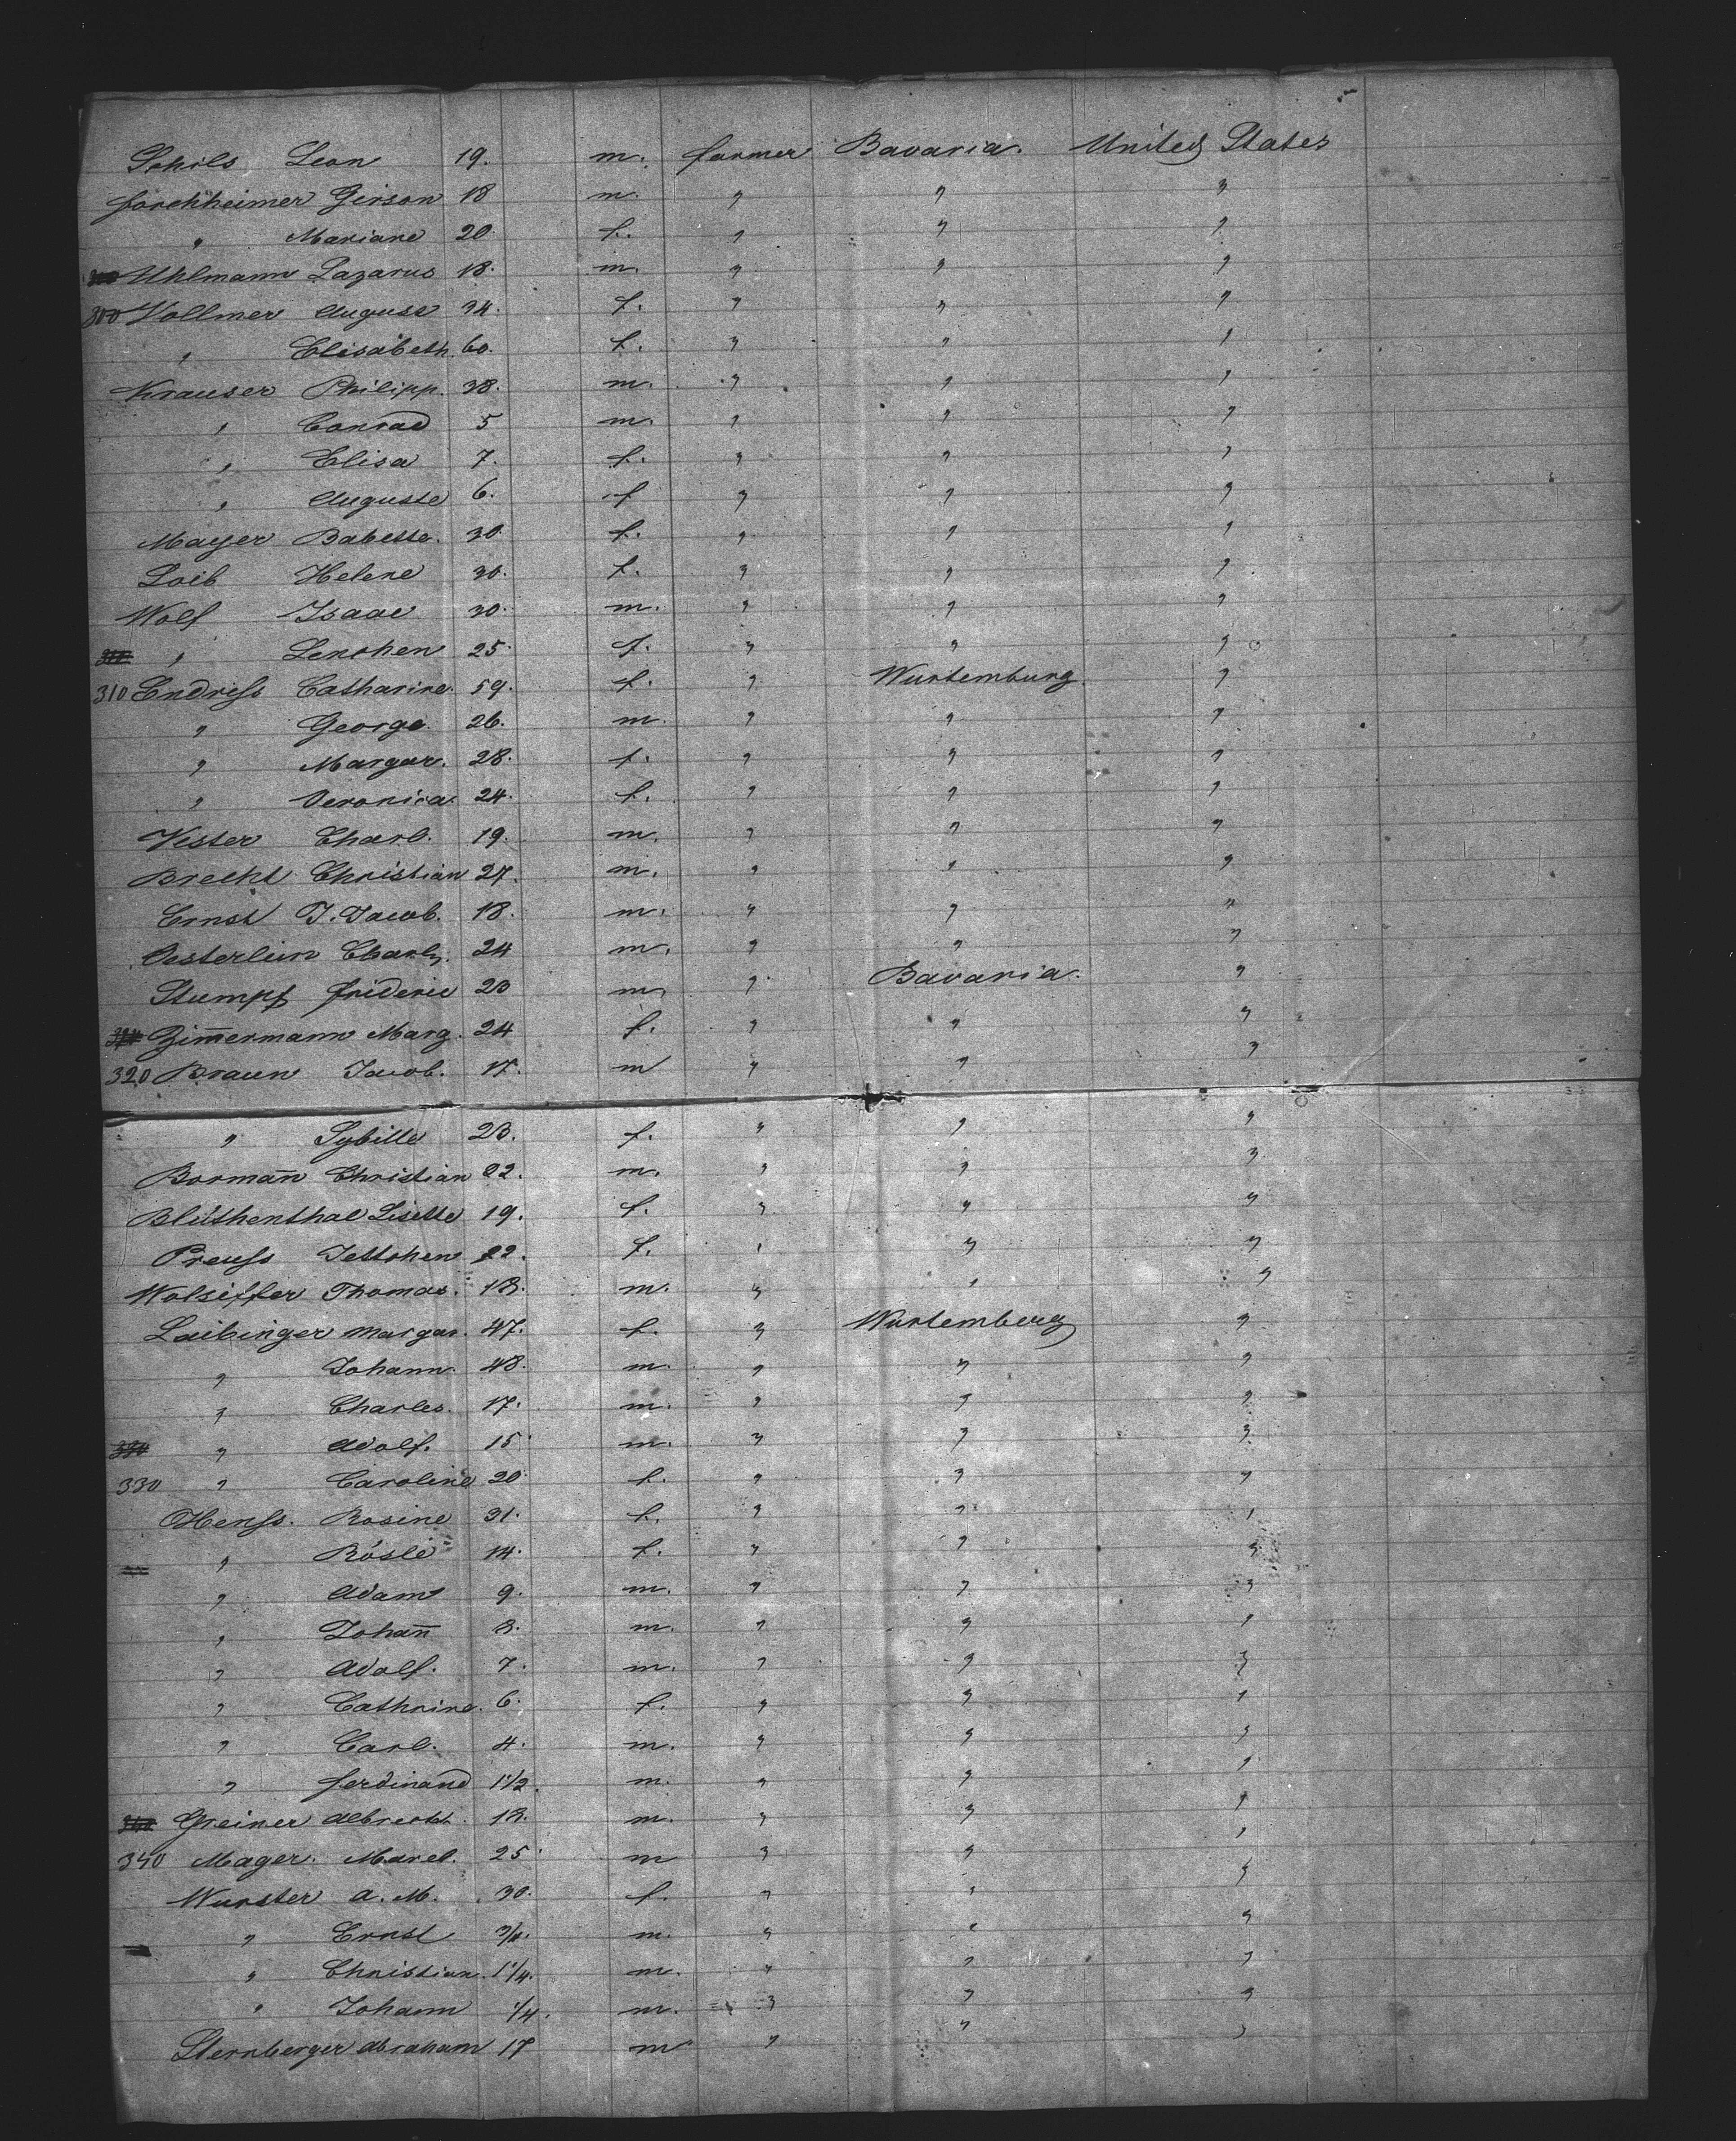 Schils Leon 19. m. farmer Bavaria. United States
Forchheimer Girson 18 m. " " "
" Mariane 20. f. " " "
Uhlmann Lazarus 18. m. " " "
300 Vollmer August 34. f. " " "
" Elisabeth. 60. f. " " "
Krauser Philipp. 38. m. " " "
" Conrad 5 m. " " "
" Elisa 7. f. " " "
" Auguste 6. f " " "
Mayer Babette. 30. f. " " "
Loib Helene 30. f. " " "
Wolf Isaac 30. m. " " "
" Lenchen 25. f. " " "
310 Endress Catharine. 59. f. " Wurtemburg. "
" George. 26. m. " " "
" Margar. 28. f. " " "
" Veronica. 24. f. " " "
Vester Charl. 19. m. " " "
Brecht Christian 27. m. " " "
Ernst J. Jacob. 18. m. " " "
Oesterlein Charls. 24 m. " " "
Stumpf Frideric 23 m " Bavaria. "
Zim̄ermann Marg. 24 f. " " "
320 Braun Jacob. 17. m " " "
" Sybille 23. f. " " "
Borman̄ Christian 22. m. " " "
Blüthenthal Lisette 19. f. " " "
Preuss Jettchen 22. f. " " "
Wolsiffer Thomas. 18. m. " " "
Laibinger Margar. 47. f. " Wurtemberg "
" Johann. 48. m. " " "
" Charles. 17. m. " " "
" Adolf. 15 m. " " "
330 " Caroline 20 f. " " "
Henss. Rosine 31. f. " " "
" Rösle 14. f. " " "
" Adam 9. m. " " "
" Johan̄ 8. m. " " "
" Adolf. 7. m. " " "
" Cathrine. 6. f. " " "
" Carl. 4. m. " " "
" Ferdinand 1 1/2. m. " " "
Greiner Albrecht. 18. m. " " "
340 Mager. Marel. 25 m " " "
Wurster A. M. 30. f. " " "
" Ernst 3/4. m. " " "
" Christian. 1 1/4. m. " " "
" Johann 1/4. m. " " "
Sternberger Abraham 17 m " " "